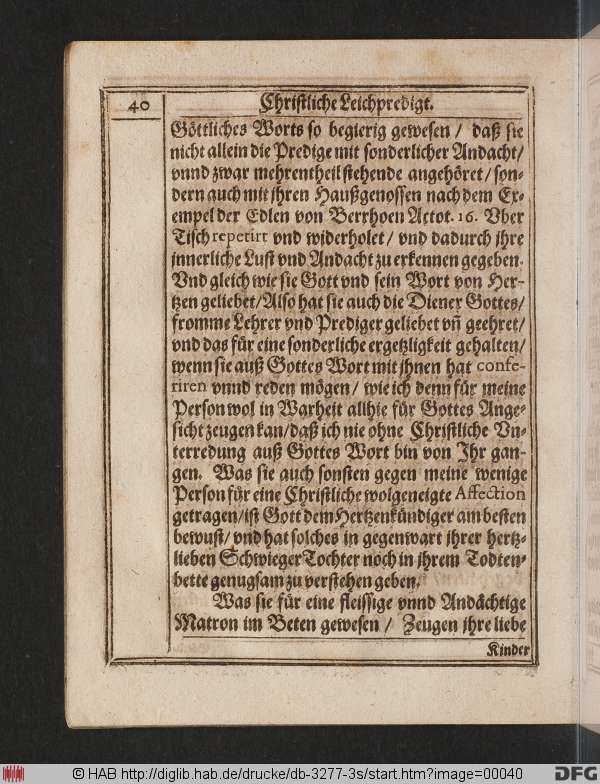 40
Christliche Leichpredigt.
Göttliches Worts so begierig gewesen / daß sie
nicht allein die Predige mit sonderlicher Andacht/
vnnd zwar mehrentheil stehende angehöret/ son-
dern auch mit ihren Haußgenossen nach dem Ex-
empel der Edlen von Berrhoen Actot. 16. Vber
Tisch repetirt vnd widerholet/ vnd dadurch ihre
innerliche Lust vnd Andacht zu erkennen gegeben.
Vnd gleich wie sie Gott vnd sein Wort von Her-
tzen geliebet/ Also hat sie auch die Diener Gottes/
fromme Lehrer vnd Prediger geliebet vñ geehret/
vnd das für eine sonderliche ergetzligkeit gehalten/
wenn sie auß Gottes Wort mit ihnen hat confe-
riren vnnd reden mögen/ wie ich denn für meine
Person wol in Warheit allhie für Gottes Ange-
sicht zeugen kan/ daß ich nie ohne Christliche Vn-
terredung auß Gottes Wort bin von Ihr gan-
gen. Was sie auch sonsten gegen meine wenige
Person für eine Christliche wolgeneigte Affection
getragen/ ist Gott dem Hertzenkündiger am besten
bewust/ vnd hat solches in gegenwart ihrer hertz-
lieben Schwieger Tochter noch in ihrem Todten-
bette genugsam zu verstehen geben.
Was sie für eine fleissige vnnd Andächtige
Matron im Beten gewesen / Zeugen ihre liebe
Kinder
© HAB http://diglib.hab.de/drucke/db-3277-3s/start.htm?image=00040
DFG